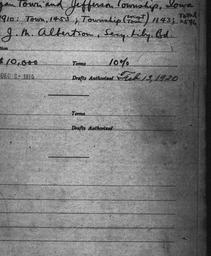 gan Town and Jefferson Township, Iowa
1910: Town, 1453; Township (except Town) 1143; Total 2596
J. M. Albertson, Secy. Lib. Bd.
$10,000 Terms 10%
DEC 2- 1915 Drafts Authorized Feb 13, 1920
Terms
Drafts Authorized